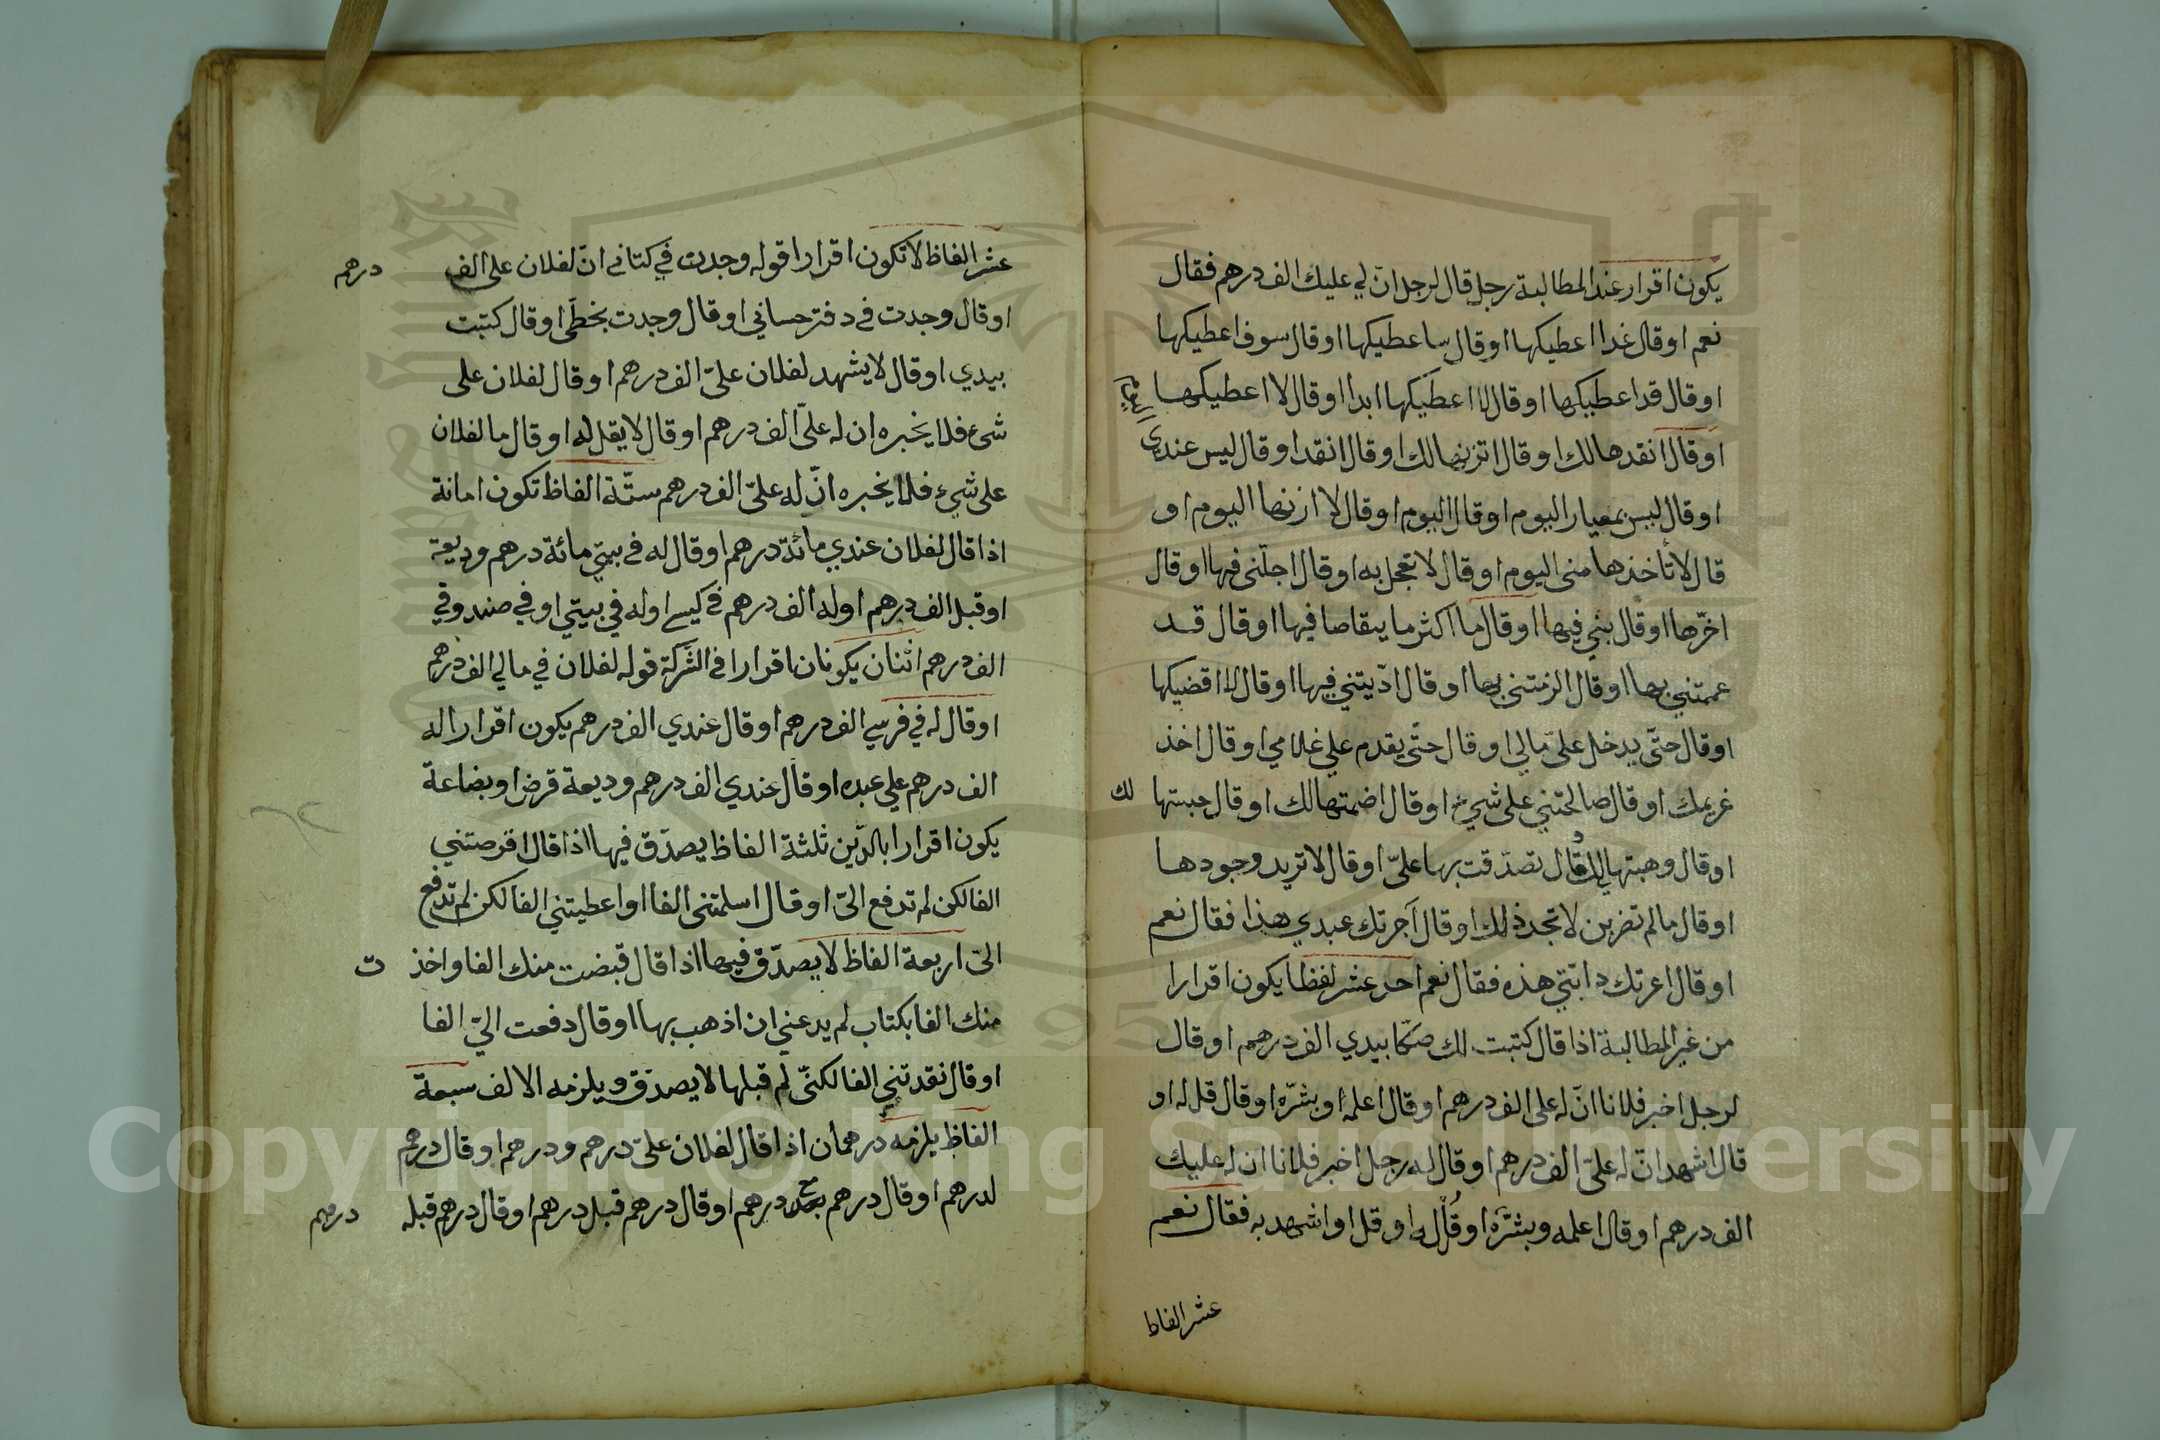 يكون اقرار عند المطالبة رجل قال لرجل انّ لي عليك الف درهم فقال
نعم او قال غدا اعطيكها او قال ساعطيكها او قال سوف اعطيكها
او قال قد اعطيكها او قال لا اعطيكها ابدا او قال لا اعطيكها
او قال انقدها لك او قال اتزنها لك او قال انقد او قال ليس عندي
او قال ليس بمعيار اليوم او قال اليوم او قال لا ازنها اليوم او
قال لا تأخذها مني اليوم او قال لا تعجل به او قال اجلّني فيها او قال
اخّرها او قال فيها او قال ما اكثر ما يتقاصا فيها او قال قد
غممتني بها او قال الزمتني بها او قال اذيتني فيها او قال لا اقضيكها
او قال حتّى يدخل عليّ مالي او قال حتّى يقدم علي غلامي او قال اخذ
غريمك او قال صالحتني على شيء او قال اضمنتها لك او قال حبستها لك
او قال وهبتها لي او قال تصدّقت بها عليّ او قال لا تريد وجودها
او قال مالم لا تجد ذلك او قال آجرتك عبدي هذا فقال نعم
او قال اعرتك دابّتي هذه فقال نعم احد عشر لفظا يكون اقرارا
من غير المطالبة اذا قال كتبت لك صكا بيدي الف درهم او قال
لرجل اخبر فلانا انّ له على الف درهم او قال اعلمه او بشّره او قال قل له او
قال اشهد انّ له عليّ الف درهم او قال له رجل اخبر فلانا ان له عليك
الف درهم او قال اعلمه وبشّره او قُل له او قل او اشهد به فقال نعم
عشر الفاظ
عشر الفاظ لا تكون اقرارا قوله وجدت في كتابي انّ لفلان على الف درهم
او قال وجدت في دفتر حسابي او قال وجدت بخطّي او قال كتبت
بيدي او قال لا يشهد لفلان عليّ الف درهم او قال لفلان على
شيء فلا يخبره ان له عليّ الف درهم او قال لا يقل له او قال ما لفلان
على شيء فلا يخبره انّ له عليّ الف درهم ستّة الفاظ تكون امانة
اذا قال لفلان عندي مائة درهم او قال له في بيتي مائة درهم وديعة
او قبل الف درهم او له الف درهم في كيسي او له في بيتي او في صندوقي
الف درهم اثنان يكونان اقرارا في الشركة قوله لفلان في مالي الف درهم
او قال له في فرسي الف درهم او قال عندي الف درهم يكون اقرارا له
الف درهم علي عبده او قال عندي الف درهم وديعة قرض او بضاعة
يكون اقرارا بالدّين ثلثة الفاظ يصدّق فيها اذا قال اقرضتني
الفا لكن لم تدفع اليّ او قال اسلمتني الفا او اعطيتني الفا لكن لم تدفع
اليّ اربعة الفاظ لا يصدّق فيها اذا قال قبضت منك الفا واخذت
منك الفا بكتاب لم يدعني ان اذهب بها او قال دفعت اليّ الفا
او قال نقدتني الفا لكنّي لم قبلها لا يصدق ويلزمه الالف سبعة
الفاظ يلزمه درهمان اذا قال لفلان عليّ درهم ودرهم او قال درهم
لدرهم او قال درهم بعد درهم او قال درهم قبل درهم او قال درهم قبله درهم
Copyright © King Saud University
1957